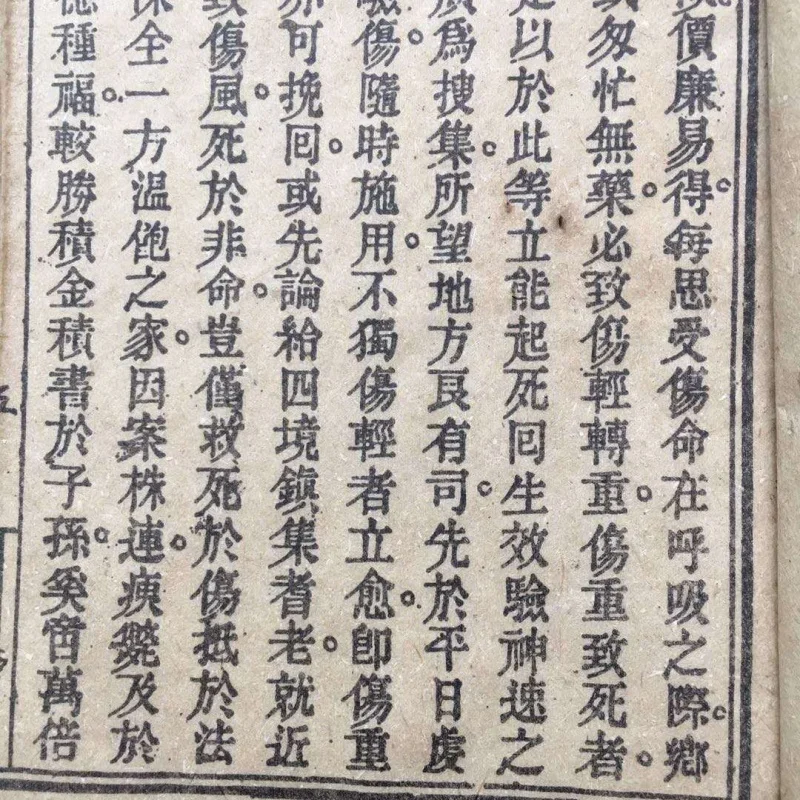 價廉易得。每思受傷命在呼吸之際。鄉
匆忙無藥。必致傷輕轉重。傷重致死者。
以於此等立能起死回生效驗神速之
爲搜集。所望地方良有司。先於平日虔
傷。隨時施用。不獨傷輕者立愈。卽傷重
亦可挽回。或先論給四境鎮集耆老。就近
致傷風。死於非命。豈僅救死於傷抵於法
保全一方温飽之家。因案株連。瘐斃及於
德種福。較勝積金積書於子孫。奚啻萬倍